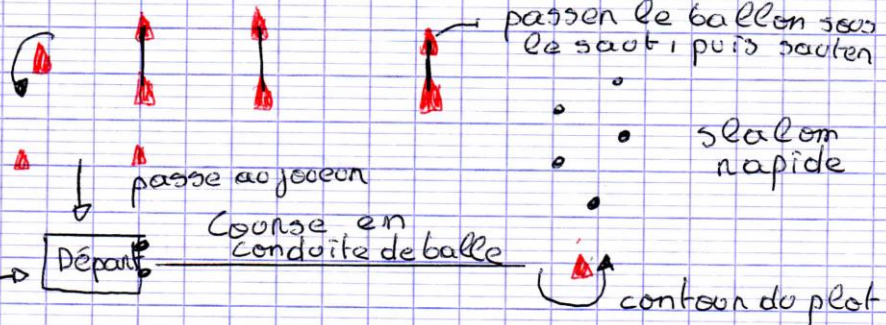 passer le ballon sous
le saut, puis sauter
slalom
rapide
passe au joueur
Course en
conduite de balle
Départ
contour du plot